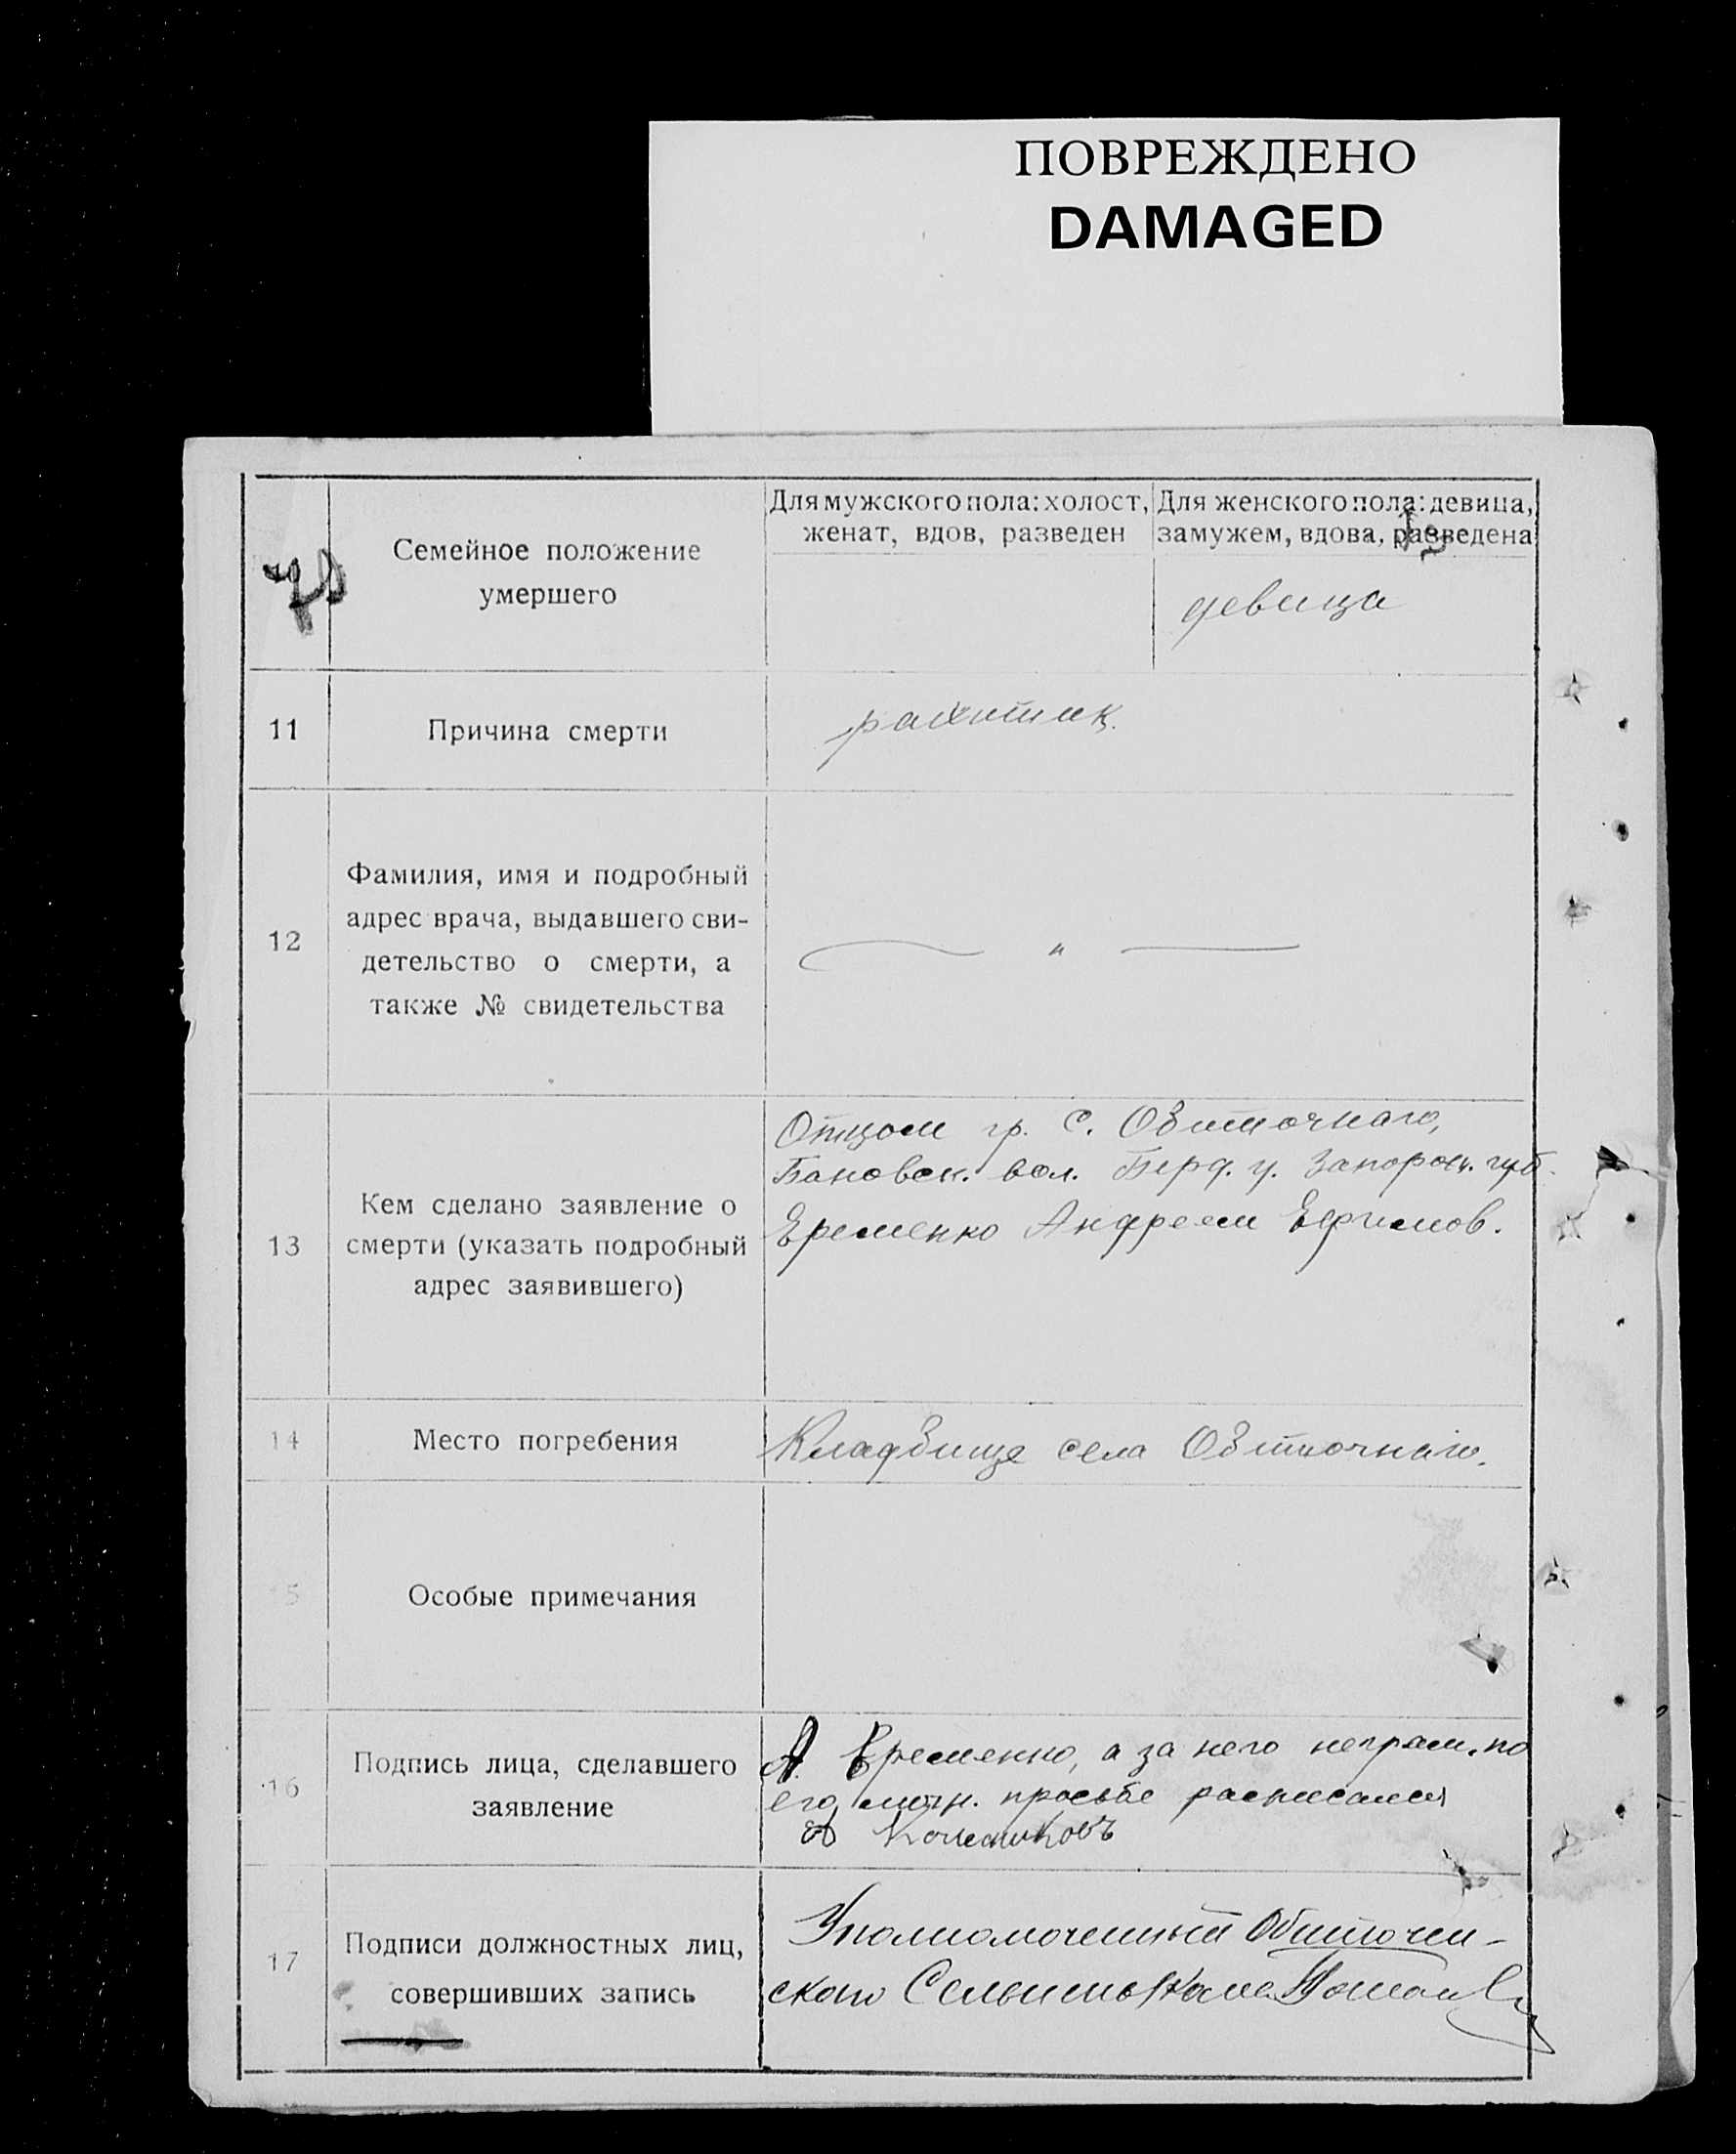 ПОВРЕЖДЕНО
DAMAGED
Семейное положение
умершего
Для мужского пола: холост,
женат, вдов, разведен
Для женского пола: девица,
замужем, вдова, разведена
девица
11
Причина смерти
рахитик.
12
Фамилия, имя и подробный
адрес врача, выдавшего сви-
детельство о смерти, а
также № свидетельства
— " —
13
Кем сделано заявление о
смерти (указать подробный
адрес заявившего)
Отцом гр. с. Обиточнаго,
Бановск. вол. Берд. у. Запорож. губ.
Еременко Андреем Ефимов.
14
Место погребения
Кладбище села Обиточнаго.
15
Особые примечания
16
Подпись лица, сделавшего
заявление
А. Еременко, а за него неграм. по
его личн. просьбе расписался
А
17
Подписи должностных лиц,
совершивших запись
Уполномоченный Обиточен-
ского